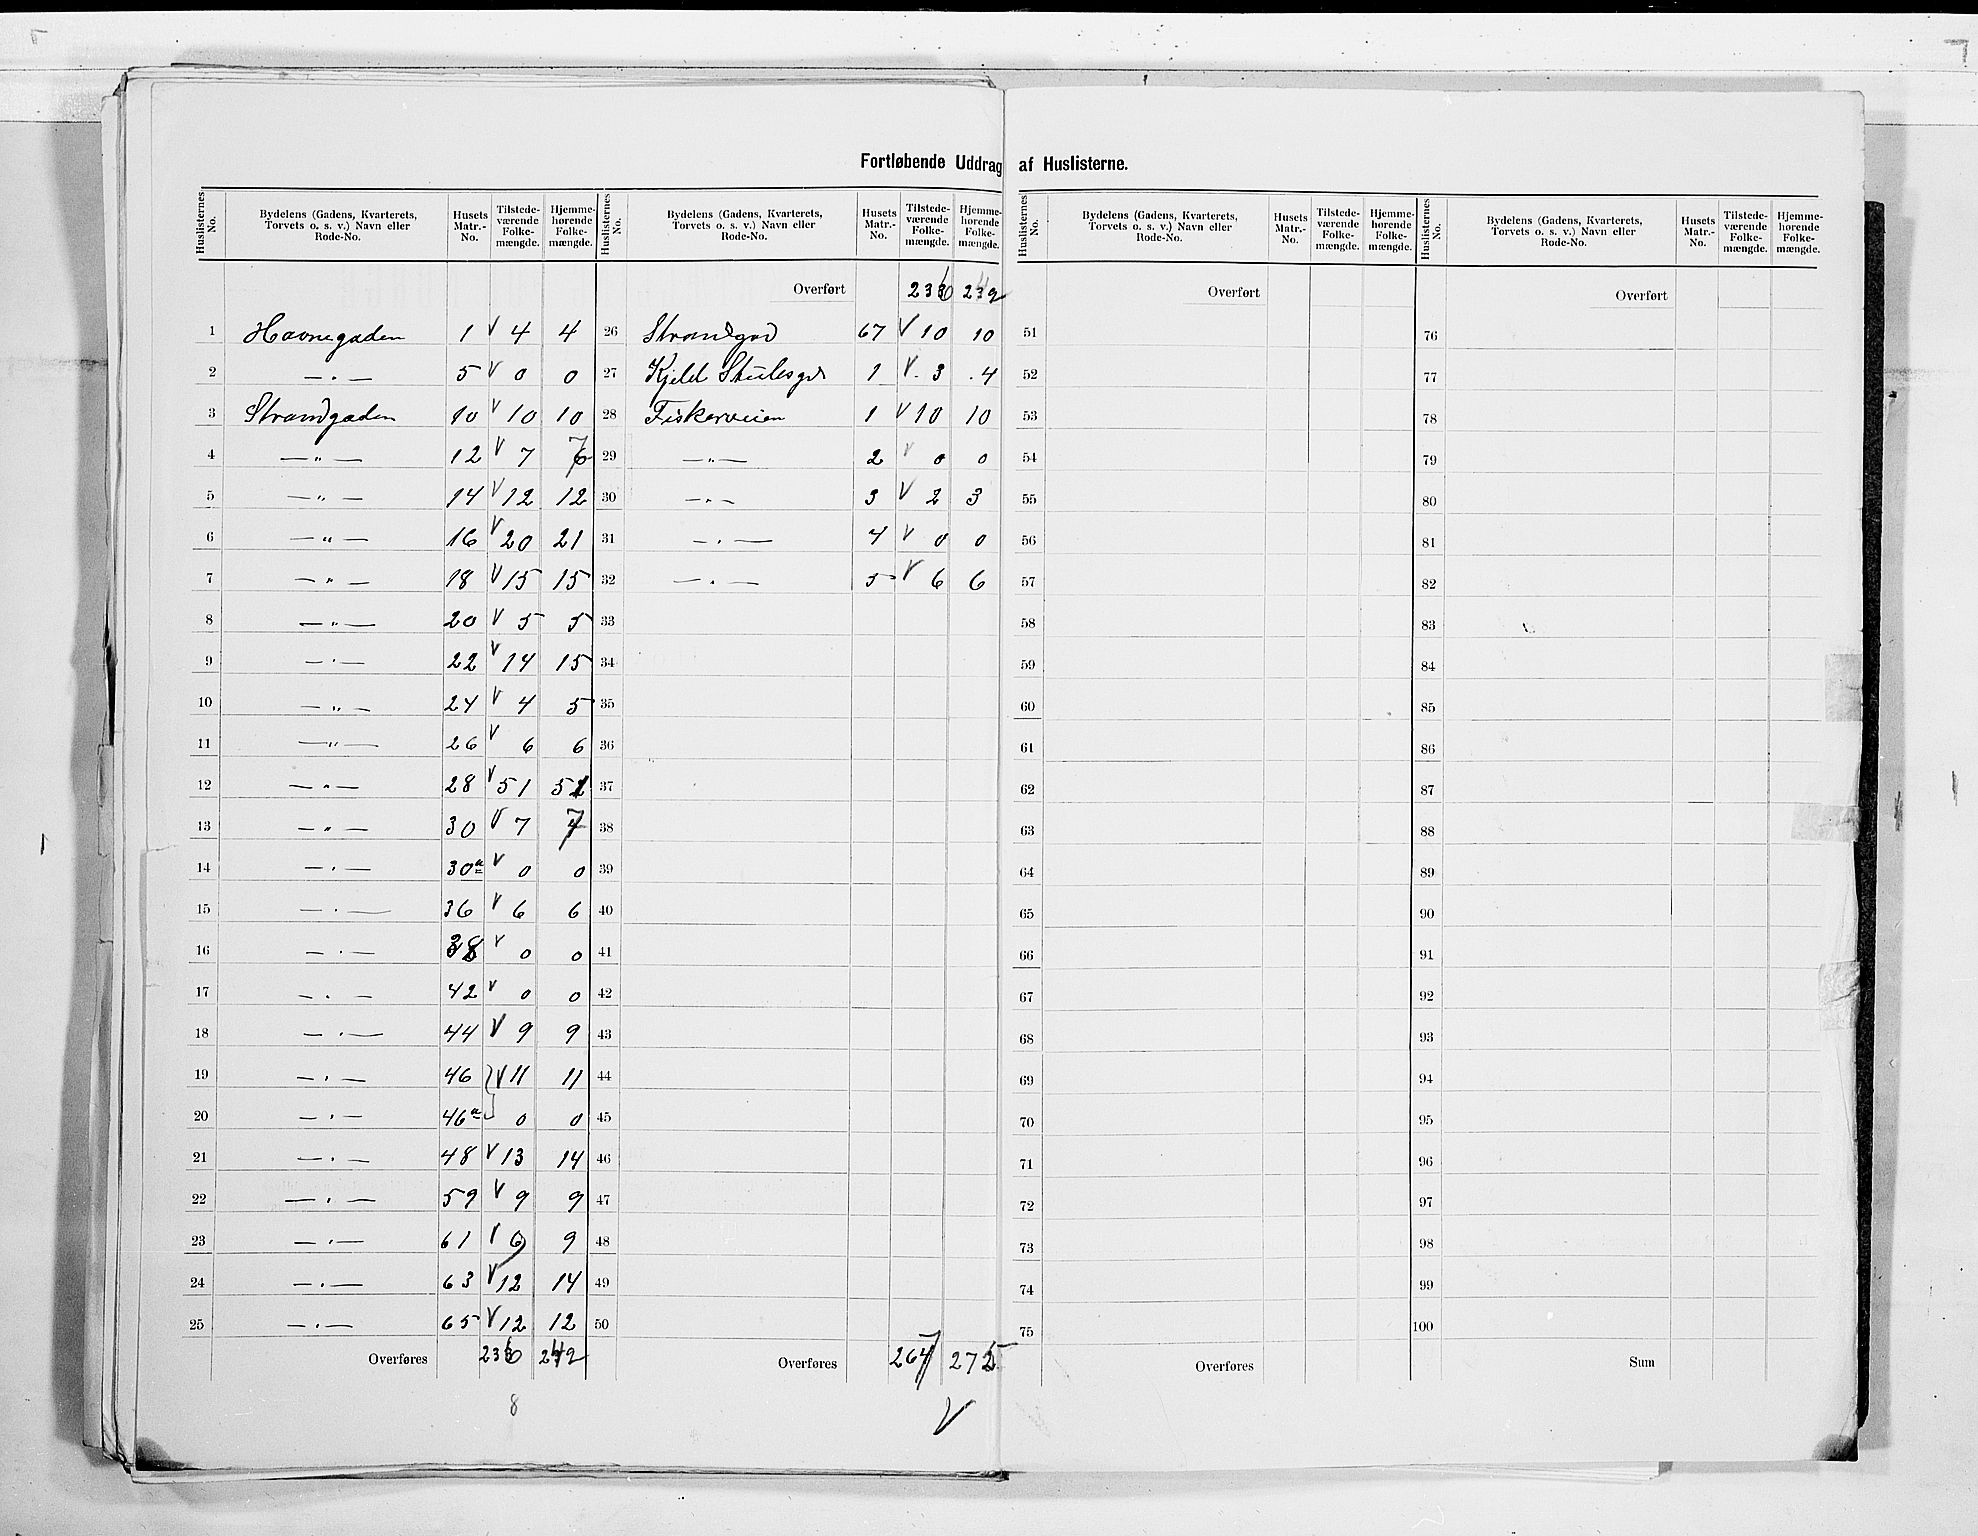 Fortløbende Uddrag af Huslisterne.
Huslisternes No. Bydelens (Gadens, Kvarterets, Torvets o. s. v.) Navn eller Rode-No. Husets Matr.-No. Tilstedeværende Folkemængde. Hjemmehørende Folkemængde.
1 Havnegaden 1 V 4 4
2 —„— 5 V 0 0
3 Strandgaden 10 V 10 10
4 —„— 12 V 7 7
5 —„— 14 V 12 12
6 —„— 16 V 20 21
7 —„— 18 V 15 15
8 —„— 20 V 5 5
9 —„— 22 V 14 15
10 —„— 24 V 4 5
11 —„— 26 V 6 6
12 —„— 28 V 51 51
13 —„— 30 V 7 7
14 —„— 30a V 0 0
15 —„— 36 V 6 6
16 —„— 38 V 0 0
17 —„— 42 V 0 0
18 —„— 44 V 9 9
19 —„— 46 V 11 11
20 —„— 46a 0 0
21 —„— 48 V 13 14
22 —„— 59 V 9 9
23 —„— 61 V 9
24 —„— 63 V 12 14
25 —„— 65 V 12 12
Overføres 236 242
8
Huslisternes No. Bydelens (Gadens, Kvarterets, Torvets o. s. v.) Navn eller Rode-No. Husets Matr.-No. Tilstedeværende Folkemængde. Hjemmehørende Folkemængde.
Overført 236 242
26 Strandgad 67 V 10 10
27 Kjeld 1 V 3 4
28 Fiskerveien 1 V 10 10
29 —„— 2 V 0 0
30 —„— 3 V 2 3
31 —„— 4 V 0 0
32 —„— 5 V 6 6
33
34
35
36
37
38
39
40
41
42
43
44
45
46
47
48
49
50
Overføres 267 275
V
Huslisternes No. Bydelens (Gadens, Kvarterets, Torvets o. s. v.) Navn eller Rode-No. Husets Matr.-No. Tilstedeværende Folkemængde. Hjemmehørende Folkemængde.
Overført
51
52
53
54
55
56
57
58
59
60
61
62
63
64
65
66
67
68
69
70
71
72
73
74
75
Overføres
Huslisternes No. Bydelens (Gadens, Kvarterets, Torvets o. s. v.) Navn eller Rode-No. Husets Matr.-No. Tilstedeværende Folkemængde. Hjemmehørende Folkemængde.
Overført
76
77
78
79
80
81
82
83
84
85
86
87
88
89
90
91
92
93
94
95
96
97
98
99
100
Sum